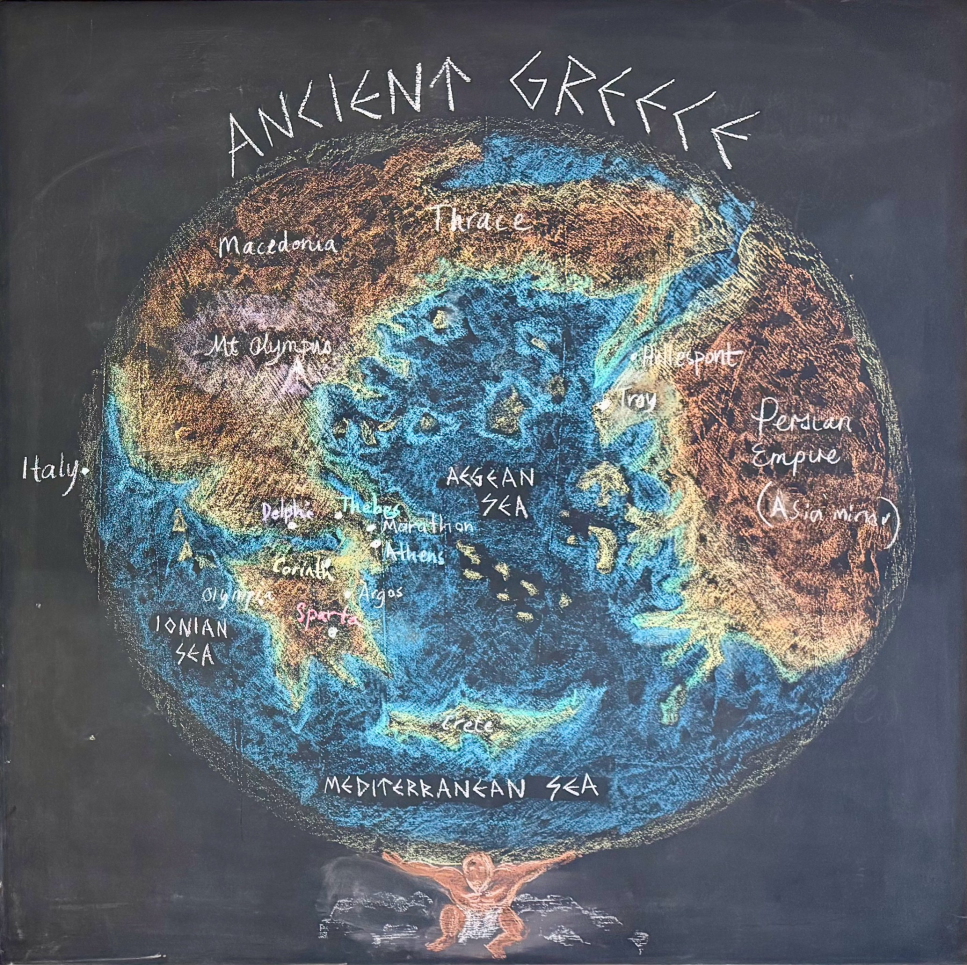 ANCIENT GREECE
Thrace
Macedonia
Mt Olympus
Hellespont
Troy
Persian
Empire
(Asia minor)
Italy
AEGEAN
SEA
Delphi
Thebes
Marathon
Athens
Corinth
Olympia
Argos
Sparta
IONIAN
SEA
Crete
MEDITERRANEAN SEA